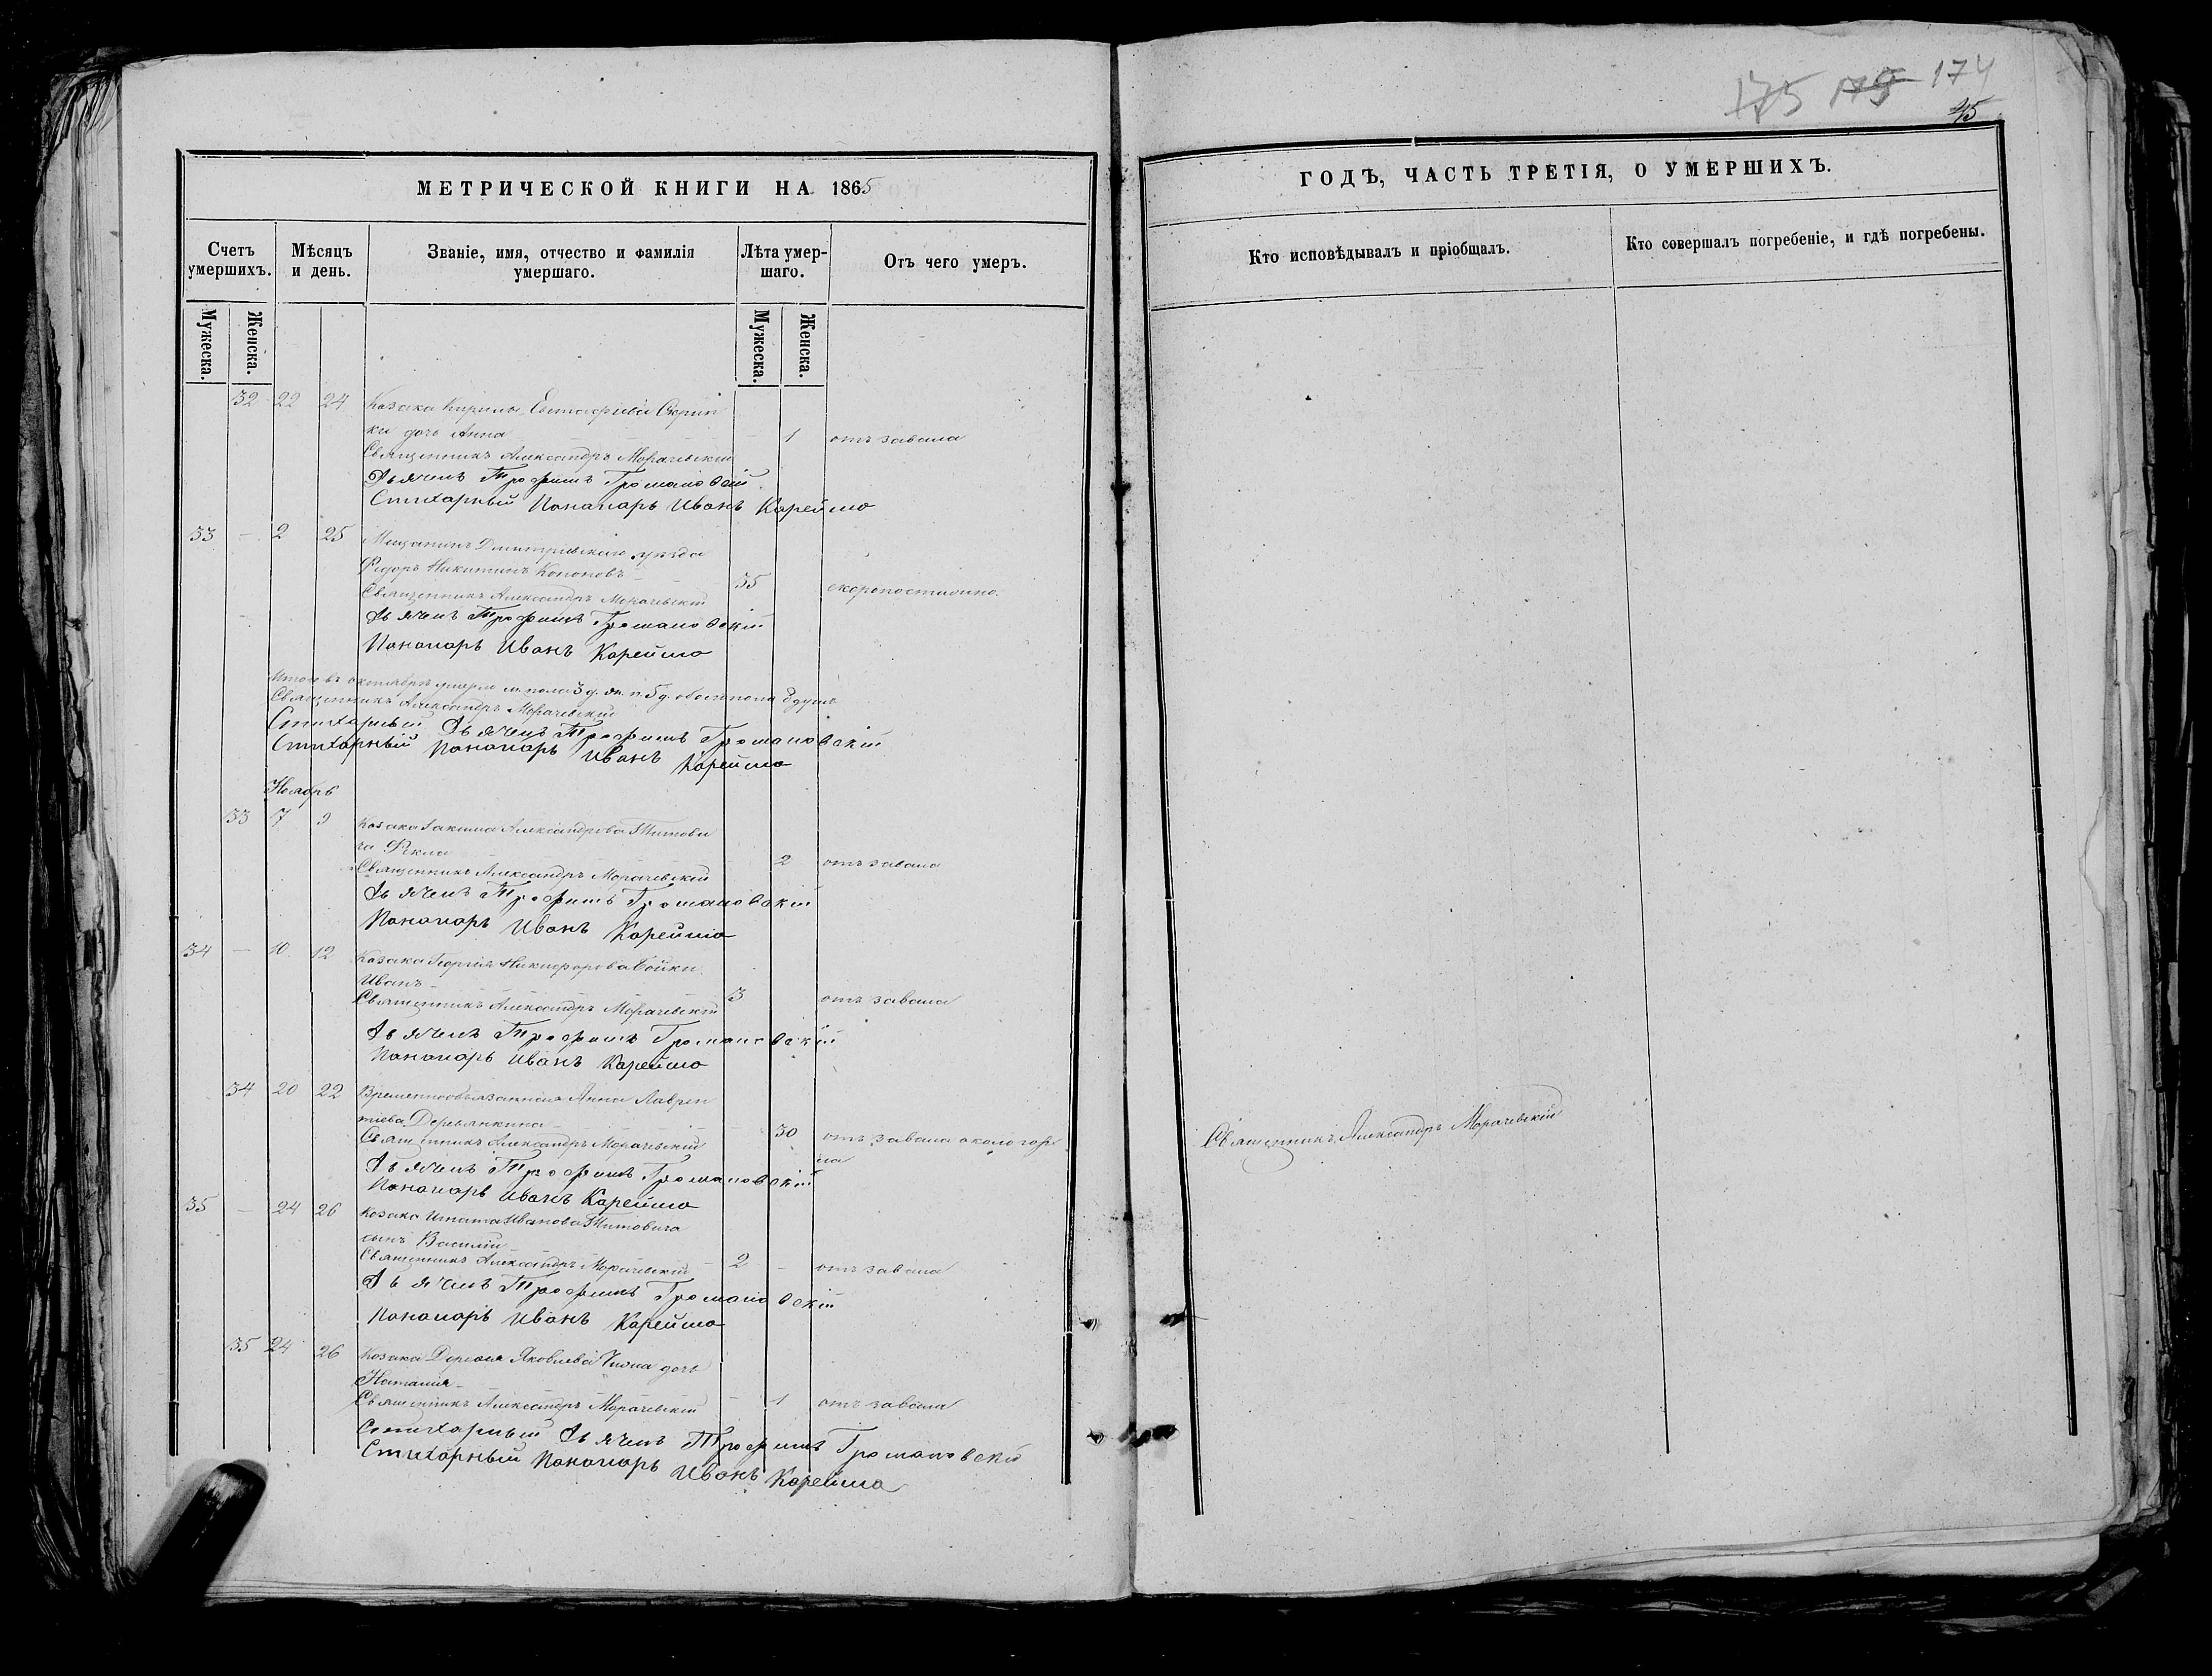 МЕТРИЧЕСКОЙ КНИГИ НА 1865
Счетъ умершихъ.
Мѣсяцъ и день.
Званіе, имя, отчество и фамилія умершаго.
Лѣта умершаго.
Отъ чего умеръ.
Мужеска.
Женска.
Мужеска.
Женска.
32 22 24 Козака Кирилы Евстафіева Скрип
ки дочь Анна 1 отъ завала
Священникъ Александръ Морачевскій
Дьячекъ Трофимъ Громановскій
Стихарный Пономарь Иванъ Карейша
33 - 2 25 Мещанинъ Дмитріевскаго уѣзда
Федоръ Никитинъ Кононовъ 35 скоропостижно.
Священникъ Александръ Морачевскій
Дьячекъ Трофимъ Громановскій
Пономарь Иванъ Карейша
Итого въ октябрѣ умерло м. пола 3 д. ж. п. 5 д. обоего пола 8 душъ
Священникъ Александръ Морачевскій
Стихарный Дьячекъ Трофимъ Громановскій
Стихарный Пономарь Иванъ Карейша
Ноябрь
33 7 9 Козака Іакима Александрова Титови
ча Фекла 2 отъ завала
Священникъ Александръ Морачевскій
Дьячекъ Трофимъ Громановскій
Пономарь Иванъ Карейша
34 - 10 12 Козака Георгія Никифорова Бойки
Иванъ 3 отъ завала
Священникъ Александръ Морачевскій
Дьячекъ Трофимъ Громановскій
Пономарь Иванъ Карейша
34 20 22 Временнообязанная Анна Лаврен
тіева Деревянкина 30 отъ завала около гор
ла
Священникъ Александръ Морачевскій
Дьячекъ Трофимъ Громановскій
Пономарь Иванъ Карейша
35 - 24 26 Козака Игната Иванова Титовича
сынъ Василій 2 - отъ завала
Священникъ Александръ Морачевскій
Дьячекъ Трофимъ Громановскій
Пономарь Иванъ Карейша
35 24 26 Козака Яковлева дочь
Наталія - 1 отъ завала
Священникъ Александръ Морачевскій
Стихарный Дьячекъ Трофимъ Громановскій
Стихарный Пономарь Иванъ Карейша
175 175 174
45
ГОДЪ, ЧАСТЬ ТРЕТІЯ, О УМЕРШИХЪ.
Кто исповѣдывалъ и пріобщалъ.
Кто совершалъ погребеніе, и гдѣ погребены.
Священникъ Александръ Морачевскій